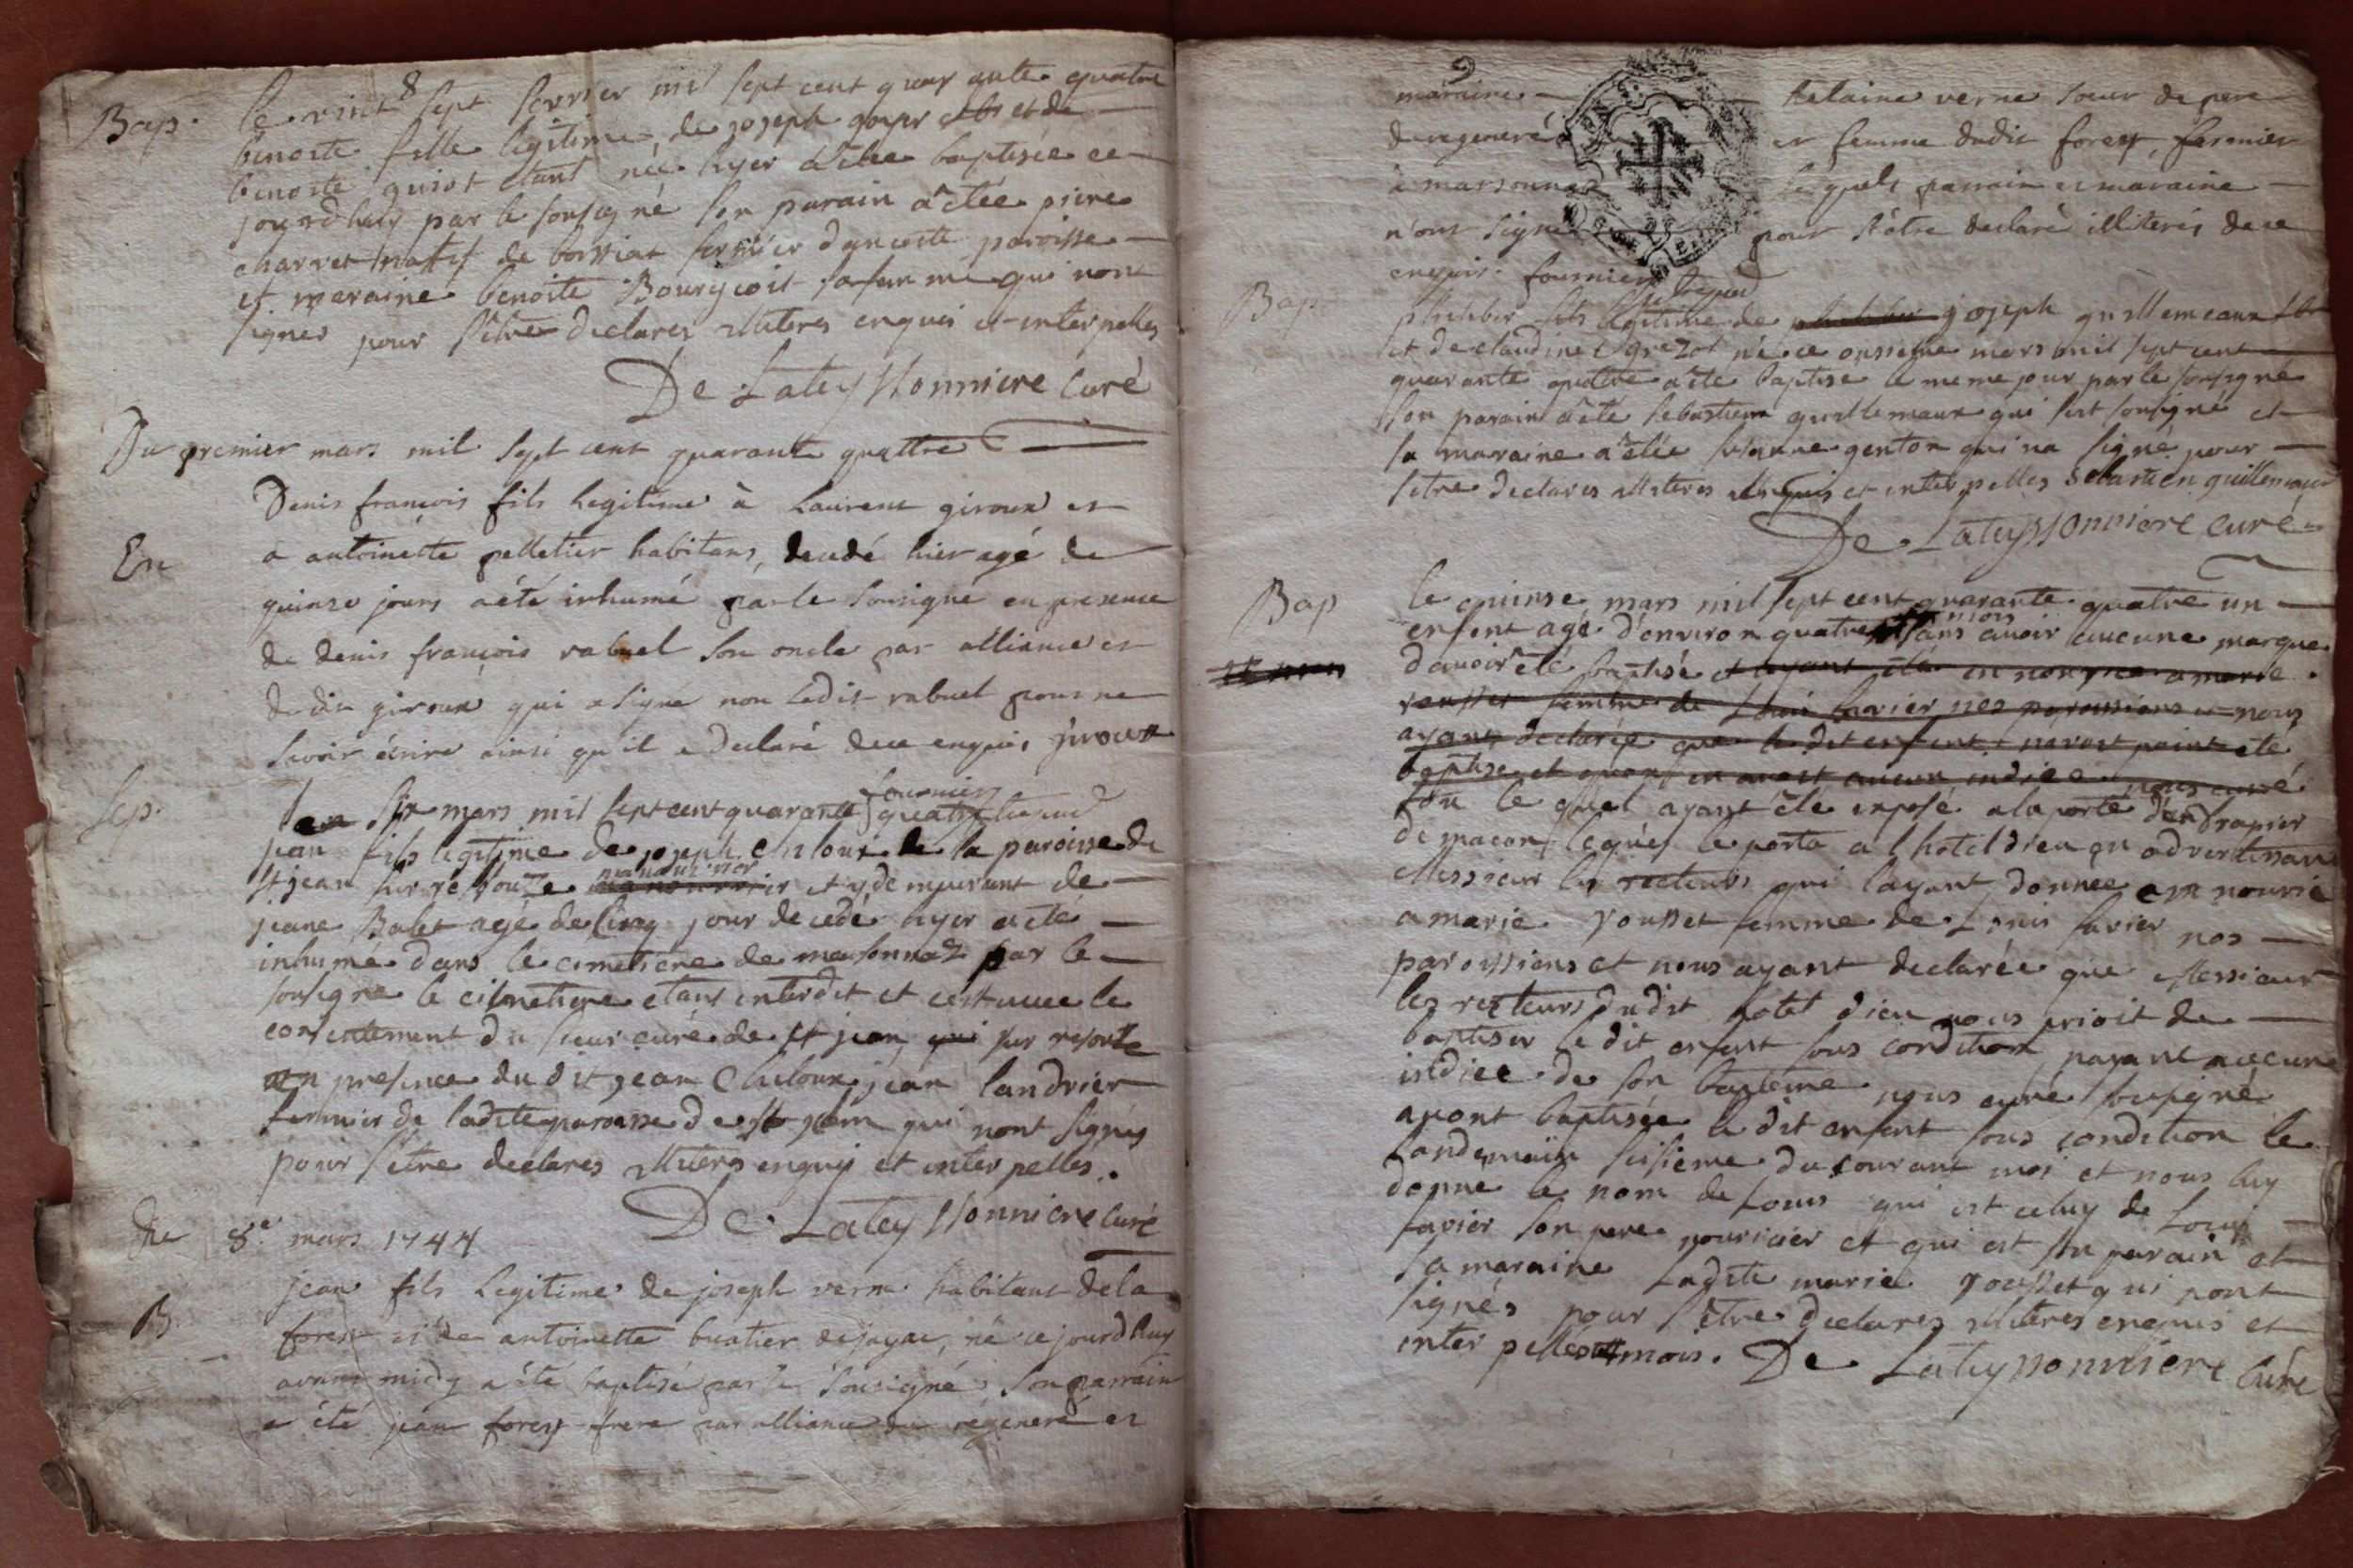 8
Bap. le vint sept fevrier mil sept cent quarante quatre
benoite fille legitime de joseph et de
benoite guiot etant née hyer a étée baptisée ce
jourdhuy par le sousigné son parain a étée pierre
charvet natif de fermier dans cette paroisse
et maraine benoite Bourgeois sa femme qui nont
signés pour s'être declares illiteres enquis et interpellés
De Lateyssonniere Curé
Du premier mars mil sept cent quarante quattre
Denis françois fils legitime à Laurent giroux et
En a antoinette pelletier habitans, decedé hier agé de
quinze jours a été inhumé par le sousigné en presence
de denis françois rabuel son oncle par alliance et
dudit giroux qui a signé non ledit rabuel pour ne
savoir écrire ainsi qu'il a declaré de ce enquis giroux
fournier
Sep. six mars mil sept cent quarante quatre
jean fils legitime de joseph Chiloux de la paroisse de
St jean sur ressouze et y demeurant de
jeane Balet agé de cinq jour decedé hyer a eté
inhumé dans le cimetiere de marsonnaz par le
sousigné le cimetiere etant interdit et cest avec le
consentement du sieur curé de st jean sur
en presence du dit jean Chiloux jean landrier
fermier de ladite paroisse de st jean qui nont signés
pour s'être declares illiteres enquis et interpellés.
De Lateyssonniere Curé
Du 8e mars 1744
jean fils legitime de joseph verne habitant de la
B. forest et de antoinette buatier de jayac, né ce jourdhuy
avant midy a été baptisé par le sousigné, son parrain
a été jean forest frere par alliance du régeneré et
9
maraine helaine verne soeur de pere
du regeneré et femme dudit forest, fermier
à marsonnas lesquels parrain et maraine
n'ont signé pour s'être declaré illiterés de ce
enquis. fournier
Bap philiber fils legitime de joseph guillemeaux
et de claudine né ce onsieme mars mil sept cent
quarante quattre a été baptisé le meme jour par le sousigné
son parain a été sebastien guillemaux qui s'est sousigné et
sa maraine a étée susanne genton qui na signé pour
s'etre declares illiteres enquis et interpelles sebastien guillemaux
De Lateyssonniere Curé
Bap le quinse mars mil sept cent quarante quatre un
mois
enfent agé d'environ quatre sans avoir aucune marque
davoir été baptisé et ayant été en nourice a marie
rousset femme de Louis favier nos paroissiens et nous
ayant declarée que le dit enfent navoit point été
baptisé et quon en avoit aucun indice nous curé
le quel ayant été exposé a la porte d'un drapier
de macon lequel le porta a l hotel dieu en advertissant
Messieur les recteurs qui layant donnée en nourie
a marie rousset femme de Louis favier nos
paroissiens et nous ayant declarée que Messieur
les recteurs dudit hotel dieu nous prioit de
baptiser le dit enfent sous condition nayant aucune
indice de son bapteme nous curé sousigné
avont baptisée le dit enfent sous condition le
landemain seisieme du courant moi et nous luy
donne le nom de Louis qui est celuy de Louis
favier son pere nouricier et qui est son parain et
sa maraine ladite marie rousset qui nont
signés pour s'être declares illiteres enquis et
interpellés mois. De Lateyssonniere Curé